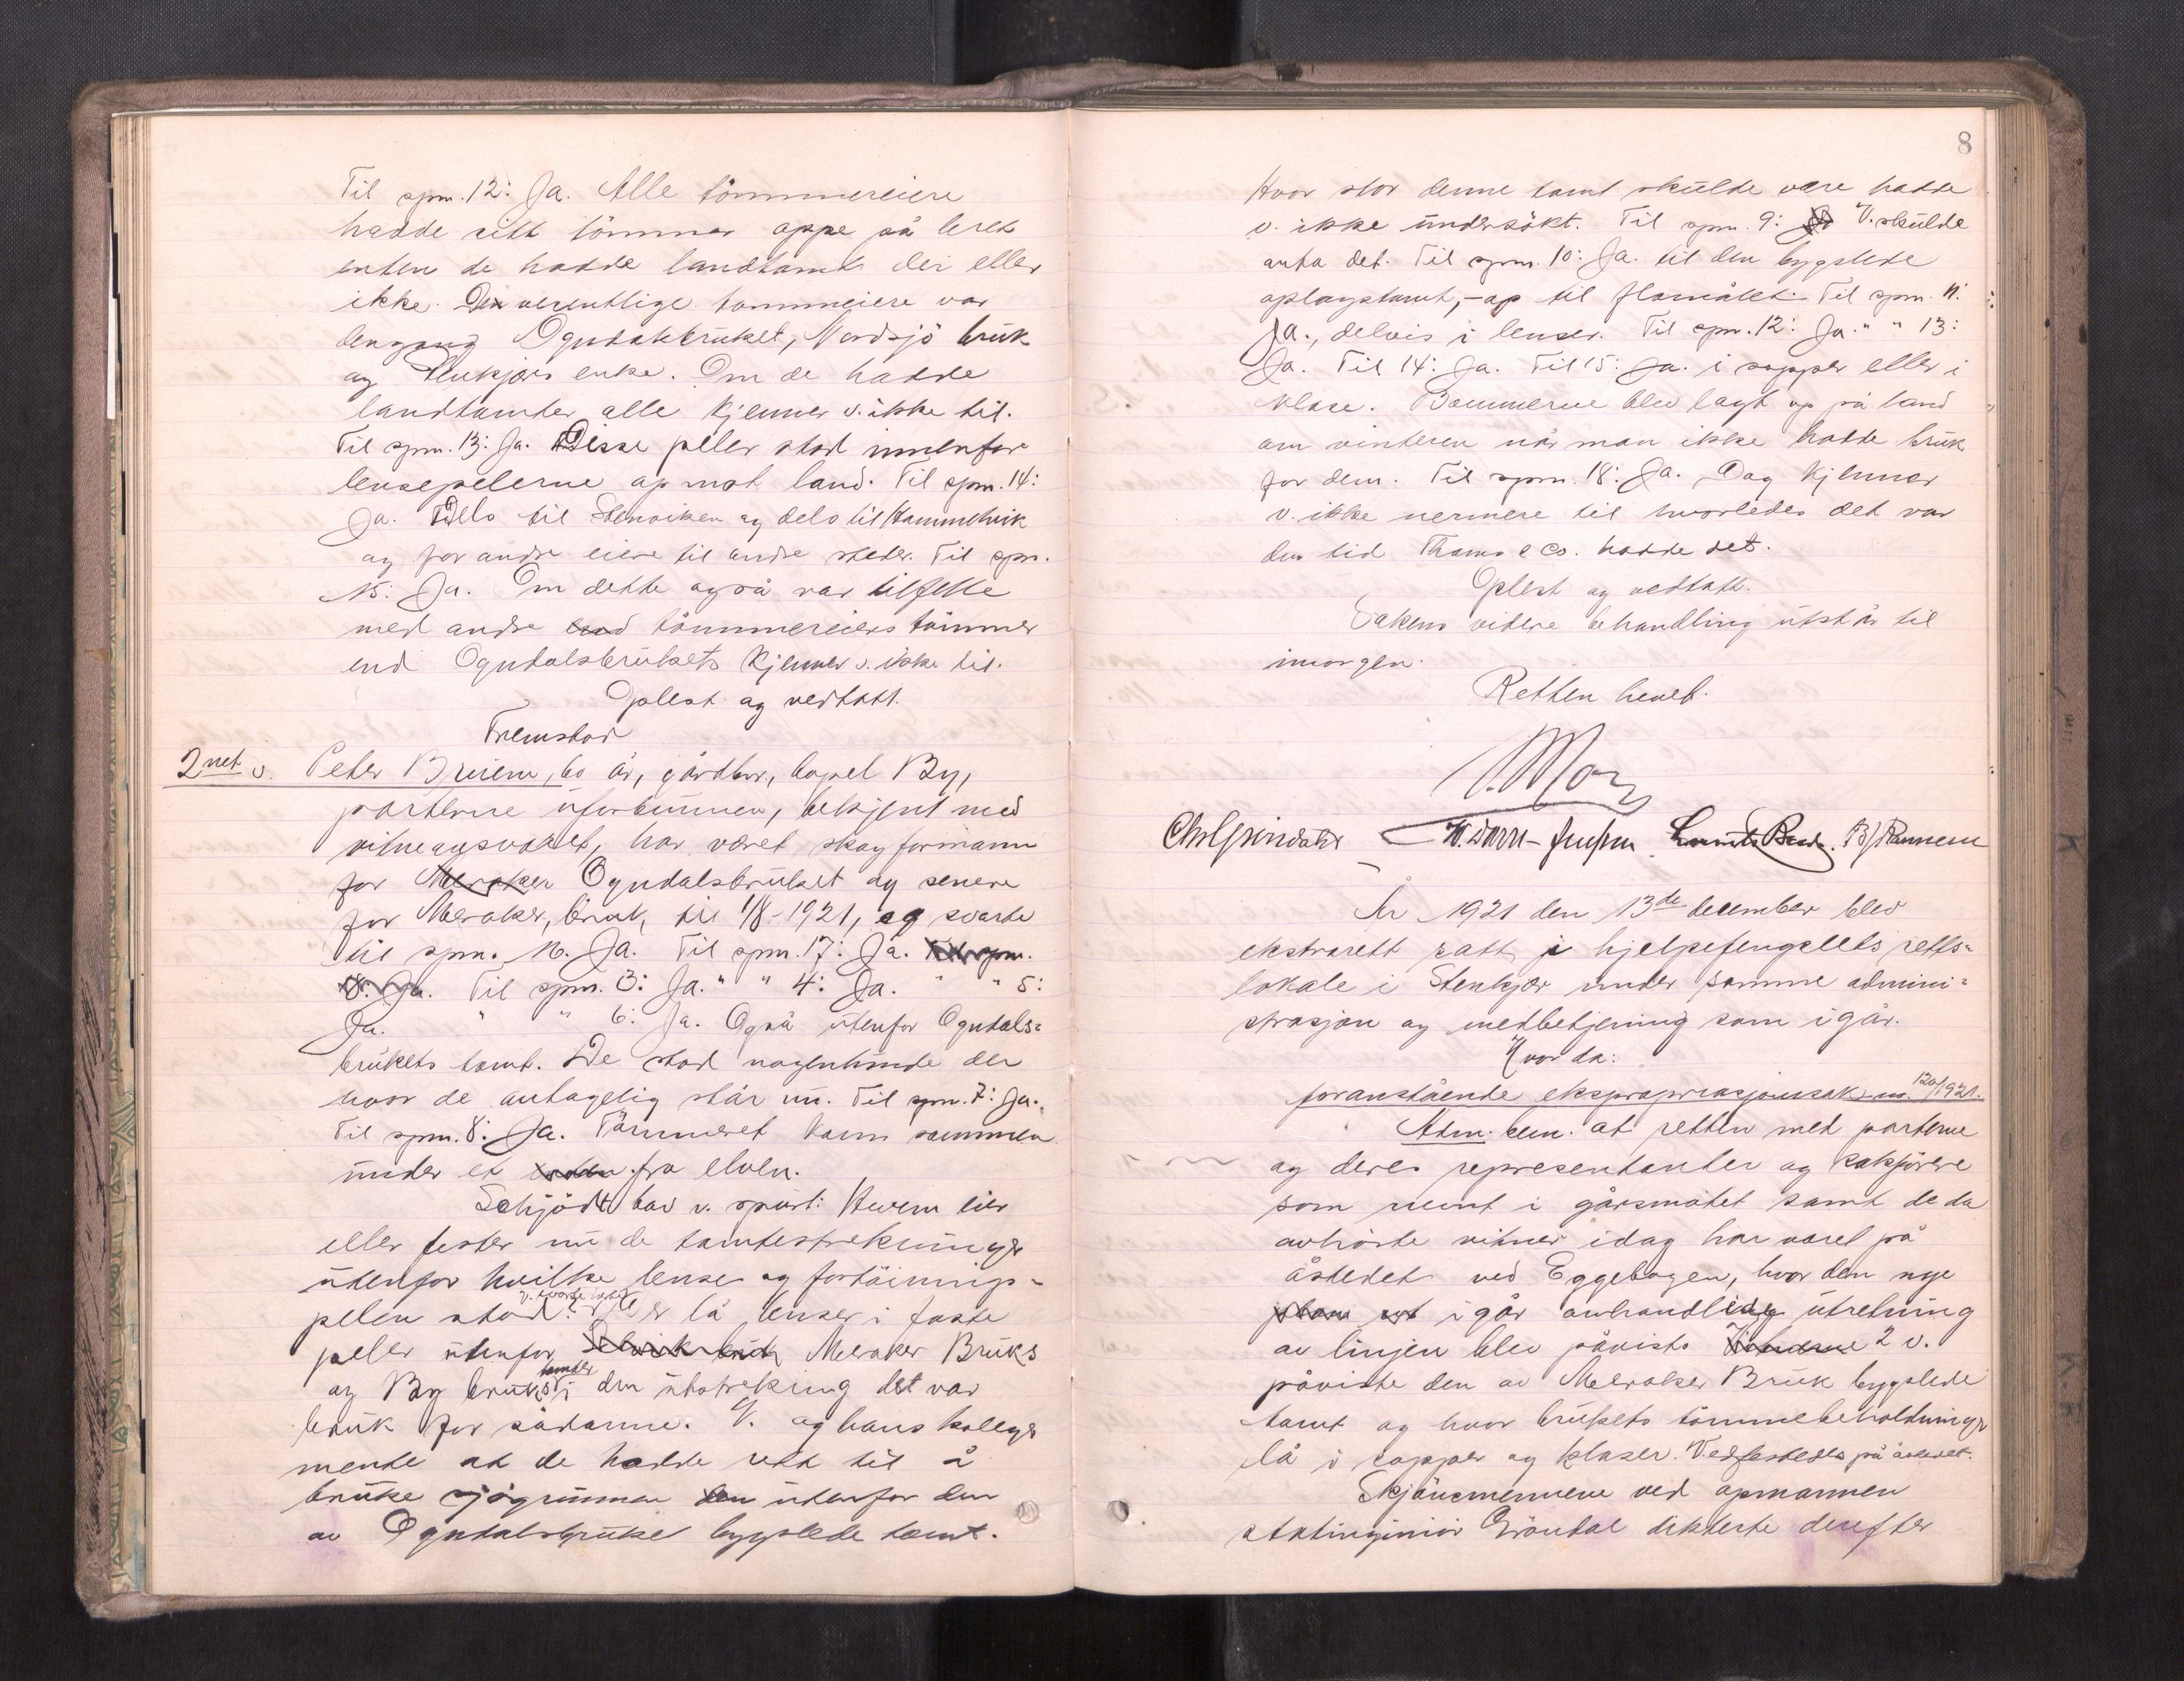 Til spm. 12: Ja. Alle tömmereiere
hadde sitt tömmer oppe på leret
enten de hadde landtomt der eller
ikke. De vesentlige tømmeiere var
dengang Ogndalsbruket, Nordsjö bruk
og enke. Om de hadde
landtomter alle kjenner v. ikke til.
Til spm. 13: Ja. Disse peller stod innenfor
lensepelerne op mot land. Til spm. 14:
Ja. Dels til Stenviken og dels til Hammelvik
og for andre eiere til andre steder. Til spm.
15: Ja. Om dette også var tilfelle
med andre tömmereiers tömmer
end Ogndalsbrukets kjenner v. ikke til.
Oplest og vedtatt.
Fremstod
2net v. Peter Bruem, 60 år, gårdbr., bopel By,
parterne uforbunnen, bekjent med
vitneansvaret, har været skogformann
for Meraker Ogndalsbruket og senere
for Meraker bruk, til 1/8-1921, og svarte
til spm. 16. Ja. Til spm. 17: Ja. Til spm.
18: Ja. Til spm. 3: Ja. " " 4: Ja. " " 5:
Ja. " " 6: Ja. Også utenfor Ogndals=
brukets tomt. De stod nogenlunde der
hvor de antagelig står nu. Til spm. 7: Ja.
Til spm. 8: Ja. Tömmeret kom sammen
under et fra elven.
Schjödt bad v. spurt: Hvem eier
eller fester nu de tomtestrekninger
utenfor hvilke lenser og fortöinings=
pelen stod? v. svarte Der lå lenser i faste
peller utenfor Meraker Bruks
og By bruks tomter i den utstrekning det var
bruk for sådanne. V. og hans kolleger
mente at de hadde rett til å
bruke sjögrunnen utenfor den
av Ogndalsbruket bygslede tomt.
8
Hvor stor denne tomt skulde være hadde
v. ikke undersökt. Til spm. 9: V. skulde
anta det. Til spm. 10: Ja. til den bygslede
oplagstomt, - op til flomålet. Til spm. 11:
Ja., delvis i lenser. Til spm. 12: Ja. " " 13:
Ja. Til 14: Ja. Til 15: Ja. i sopper eller i
klase. Bommerne blev lagt op på land
om vinteren når man ikke hadde bruk
for dem. Til spm. 18: Ja. Dog kjenner
v. ikke nermere til hvorledes det var
den tid Thams & Co. hadde det.
Oplest og vedtatt.
Sakens videre behandling utstår til
imorgen.
Retten hevet.
Chr Gröndahl B J Rannem
År 1921 den 13de december blev
ekstrarett satt i hjelpefengslets retts=
lokale i Stenkjær under samme admini=
strasjon og medbetjening som igår.
Hvor da:
foranstående ekspropriasjonsak nr. 120/1921.
Adm. bem. at retten med parterne
og deres representanter og sakförere
som nevnt i gårsmötet samt de da
avhörte vitner idag har været på
åstedet ved Eggebogen, hvor den nye
igår omhandlede utretning
av linjen blev påvist. 2 v.
påviste den av Meraker Bruk bygslede
tomt og hvor brukets tömmebeholdninger
lå i sopper og klaser. Vedfestedes på åstedet.
Skjönsmennene ved opmannen
statinginiör Gröndal dikterte derefter